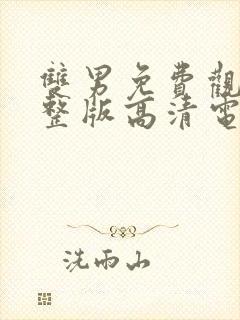 雙男免費觀
整版高清電
洗雨山